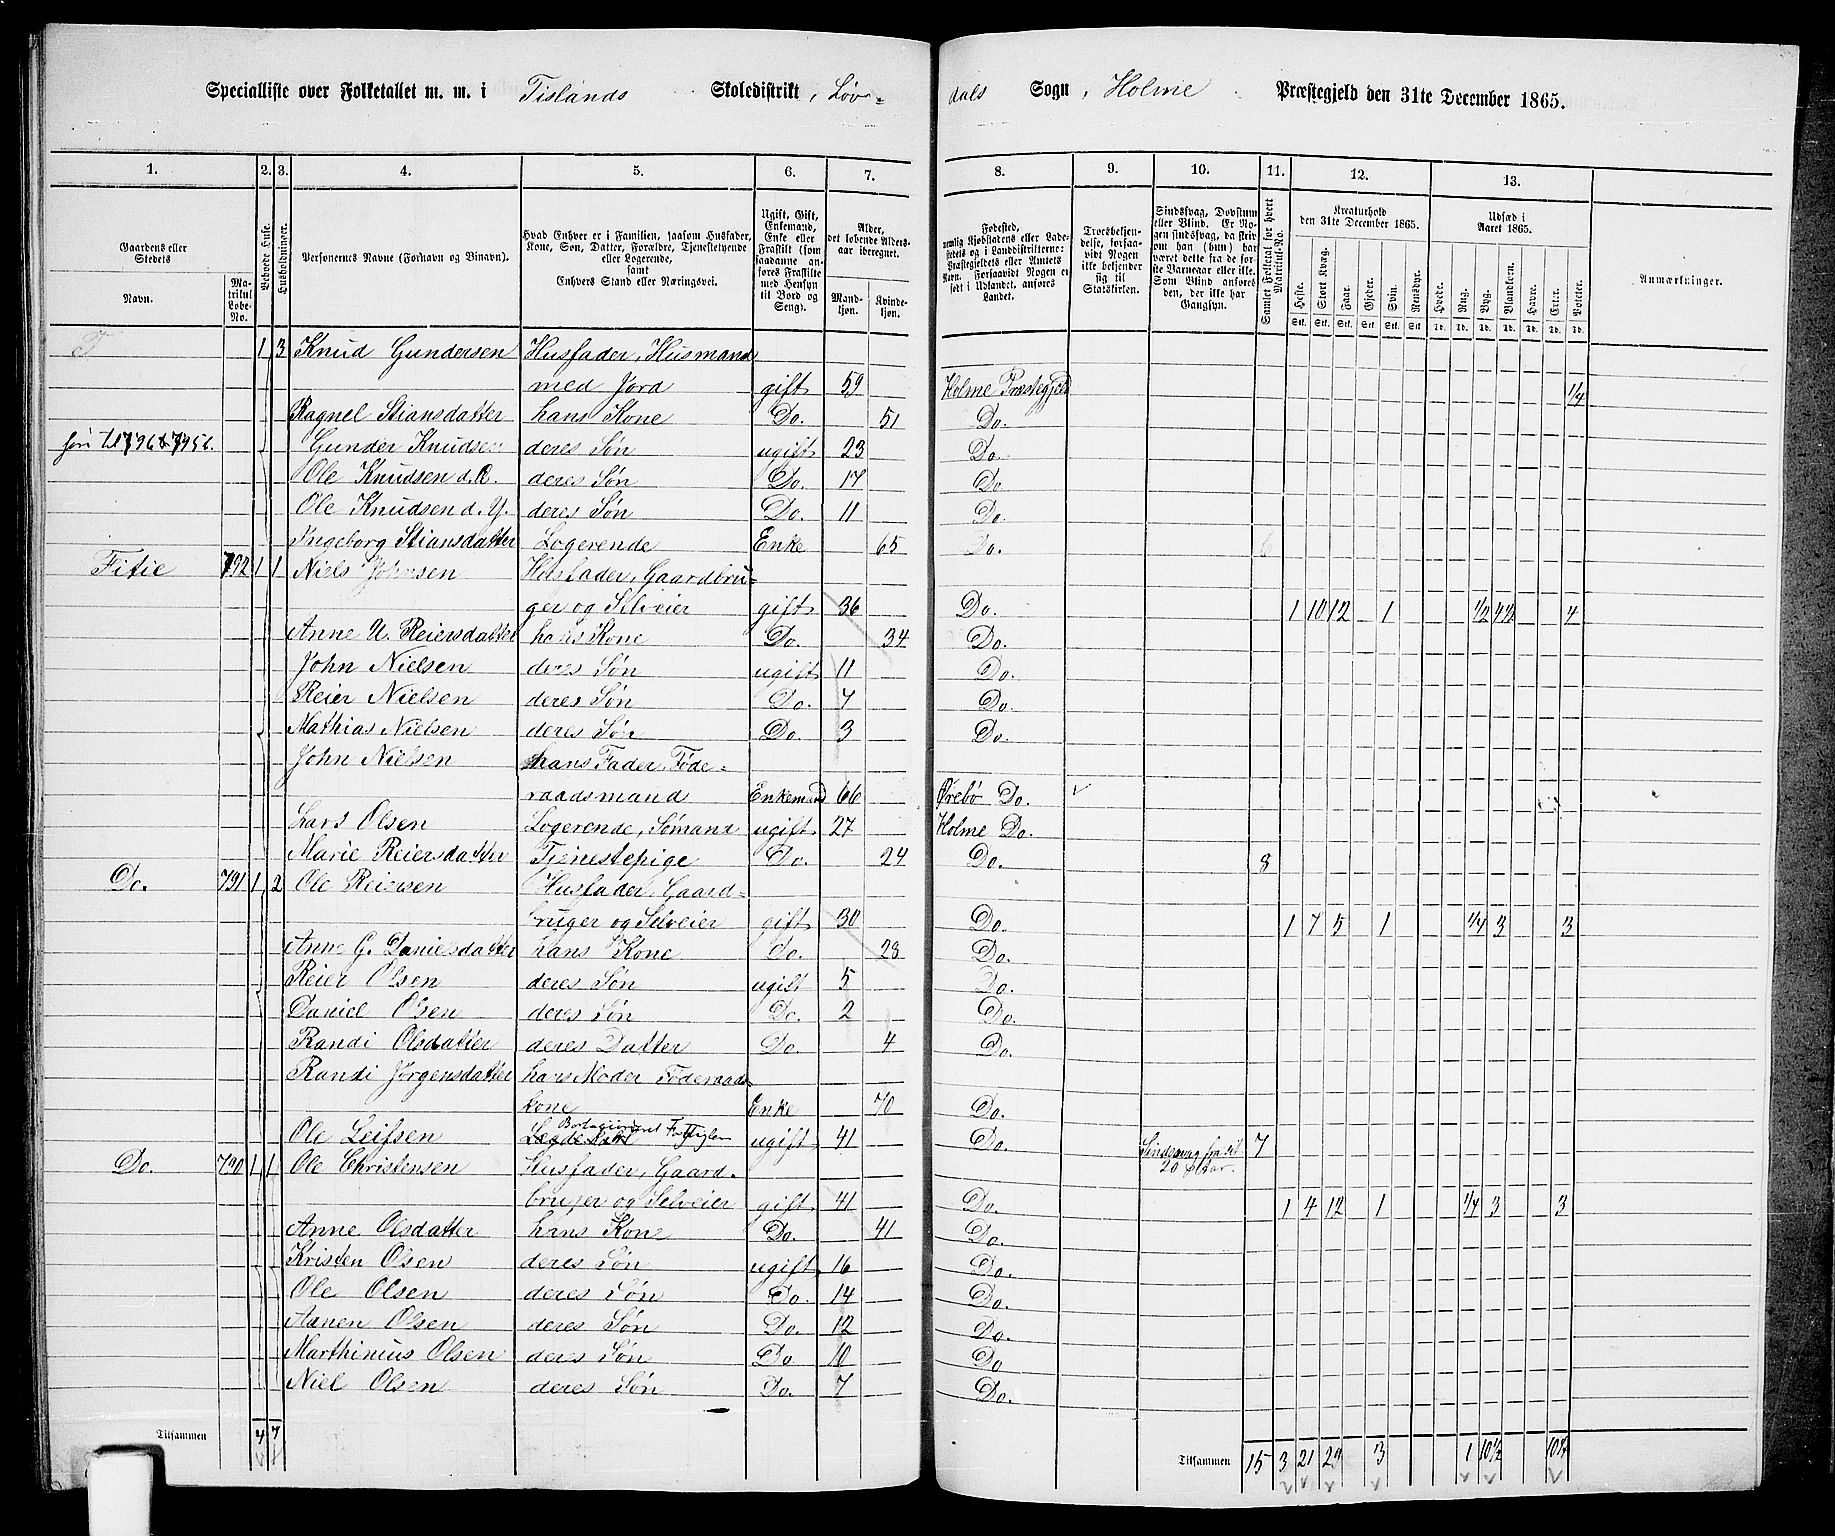 Specialliste over Folketallet m. m. i Tislands Skoledistrikt, Løv-
dals Sogn, Holme Præstegjeld den 31te December 1865.
1. 2. 3. 4. 5. 6. 7. 8. 9. 10. 11. 12. 13.
Gaardens eller Stedets
Navn.
Matrikul Løbe-No.
Beboede Huse.
Husholdninger.
Personernes Navne (Fornavn og Vinavn).
Hvad Enhver er i Familien, saasom Husfader, Kone, Søn, Datter, Forældre, Tjenestetyende eller Logerende,
samt
Enhvers Stand eller Næringsvei.
Ugift, Gift, Enkemand, Enke eller Fraskilt (saadanne anføres Fraskilte med Hensyn til Bord og Seng).
Alder, det løbende Aldersaar iberegnet.
Mandkjøn. Kvindekjøn.
Fødested,
nemlig Kjøbstadens eller Ladestedets og i Landdistrikterne: Præstegjeldets eller Amtets Navn. Forsaavidt Nogen er født i Udlandet, anføres Landet.
Troesbekjendelse, forsaavidt Nogen ikke bekjender sig til Statskirken.
Sindssvag, Døvstum eller Blind. Er Nogen sindssvag, da skrives om han (hun) har været dette fra de første Barneaar eller ikke. Som Blind anføres den, der ikke har Gangsyn.
Samlet Folketal for hvert Matrikul-No.
Kreaturhold den 31te December 1865.
Heste. Stort Kvæg. Faar. Gjeder. Svin. Rensdyr.
Udsæd i Aaret 1865.
Hvede. Rug. Byg. Blandkorn. Havre. Erter. Poteter.
Anmærkninger.
1 3 Knud Gundersen Husfader, Husmand
med Jord gift 59 Holme Præstegjeld 1/4
Ragnel Stiansdatter hans Kone Do. 51 Do.
Gunder Knudsen deres Søn ugift 23 Do.
Ole Knudsen d.Æ. deres Søn Do. 17 Do.
Ole Knudsen d. Y. deres Søn Do. 11 Do.
Ingeborg Stiansdatter Logerende Enke 65 Do. 6
Fitie 792 1 1 Niels Johnsen Husfader, Gaardbru-
ger og Selveier gift 36 Do. 1 10 12 1 1/2 4 1/2 4
Anne U. Reiersdatter hans Kone Do. 34 Do.
John Nielsen deres Søn ugift 11 Do.
Reier Nielsen deres Søn Do. 7 Do.
Mathias Nielsen deres Søn Do. 3 Do.
John Nielsen hans Fader, Føde-
raadsmand Enkemand 66 Ørebø Do.
Lars Olsen Logerende, Sømand ugift 27 Holme Do.
Marie Reiersdatter Tjenestepige Do. 24 Do. 8
Do. 791 1 2 Ole Reiersen Husfader, Gaard-
bruger og Selveier gift 30 Do. 1 7 5 1 1/4 3 3
Anne G. Danielsdatter hans Kone Do. 28 Do.
Reier Olsen deres Søn ugift 5 Do.
Daniel Olsen deres Søn Do. 2 Do.
Randi Olsdatter deres Datter Do. 4 Do.
Randi Jørgensdatter hans Moder Føderaads-
kone Enke 70 Do.
Ole Leifsen ugift 41 Do. 7
20 Aar.
Do. 790 1 1 Ole Christensen Husfader, Gaard-
bruger og Selveier gift 41 Do. 1 4 12 1 1/4 3 3
Anne Olsdatter hans Kone Do. 41 Do.
Kristen Olsen deres Søn ugift 16 Do.
Ole Olsen deres Søn Do. 14 Do.
Aanen Olsen deres Søn Do. 12 Do.
Marthinius Olsen deres Søn Do. 10 Do
Niel Olsen deres Søn Do. 7 Do.
Tilsammen 4 7
Tilsammen 15 3 21 29 3 1 10 1/2 10 1/4